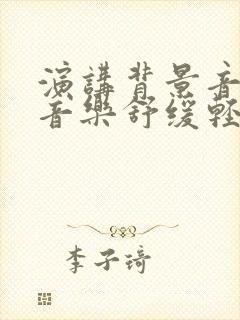 演講背景音
音樂舒缓輕
李子琦